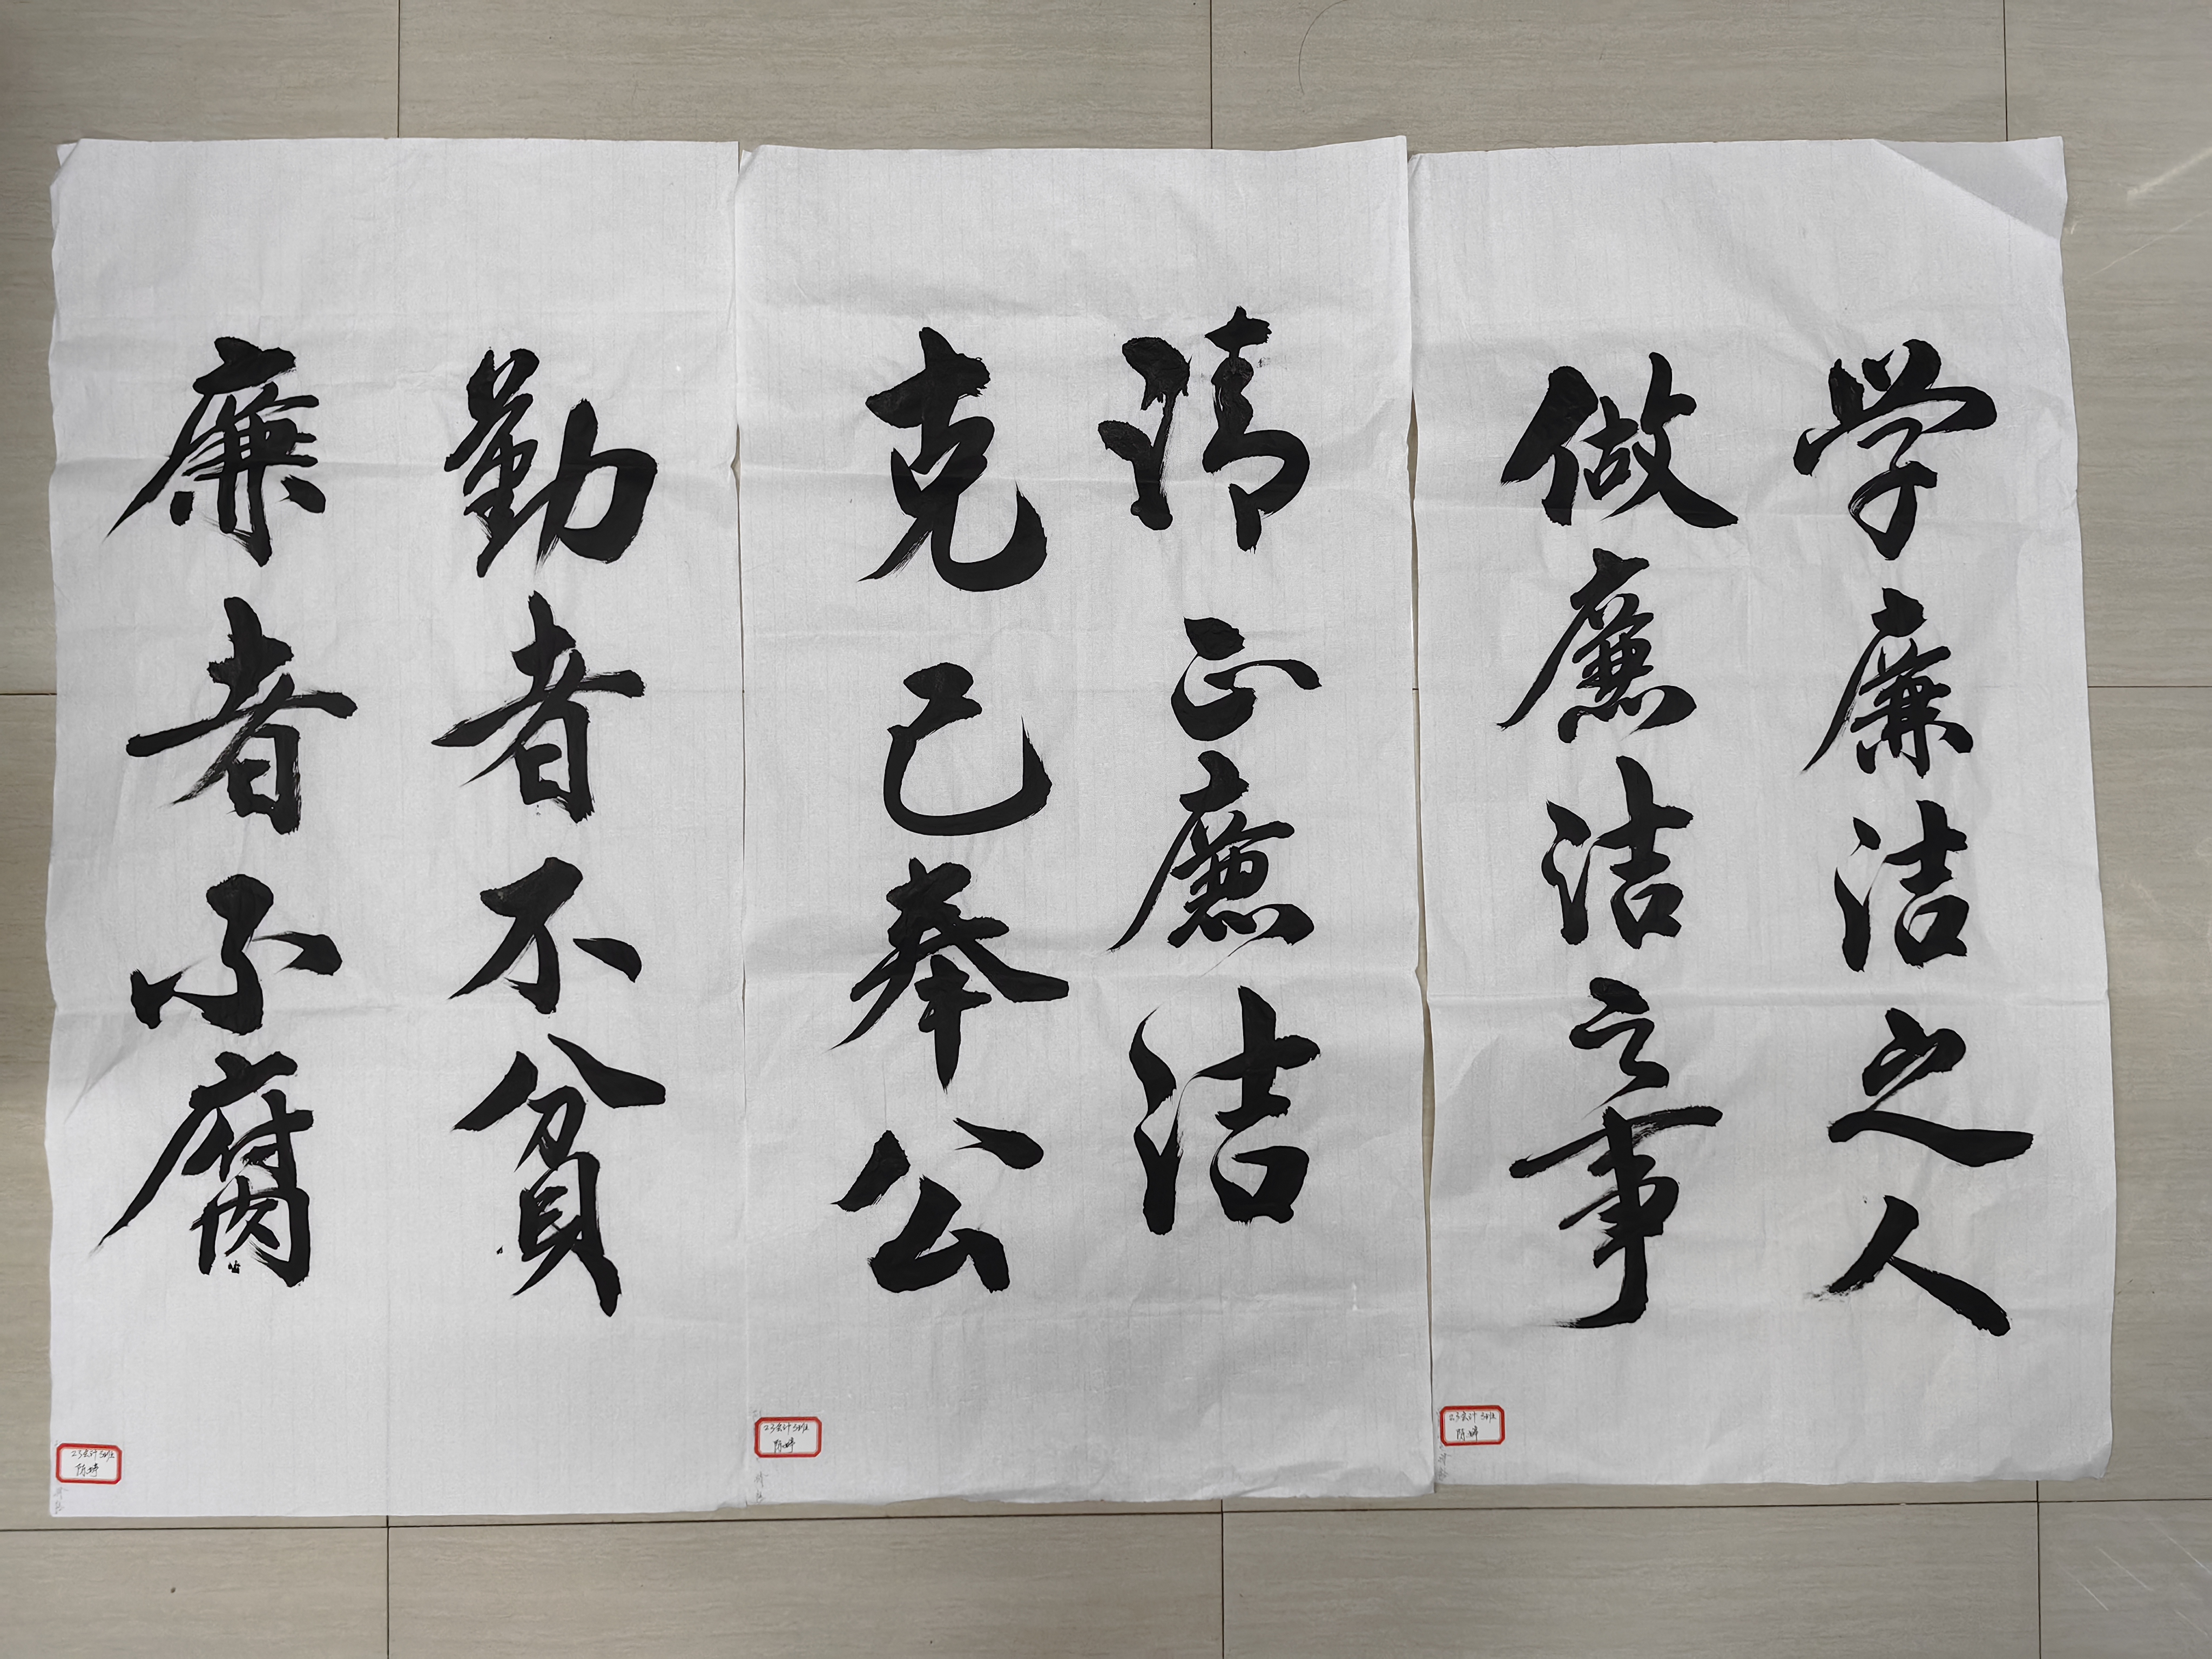 学廉洁之人
做廉洁之事
清正廉洁
克己奉公
勤者不贫
廉者不腐
23会计5班
23会计5班
23会计5班